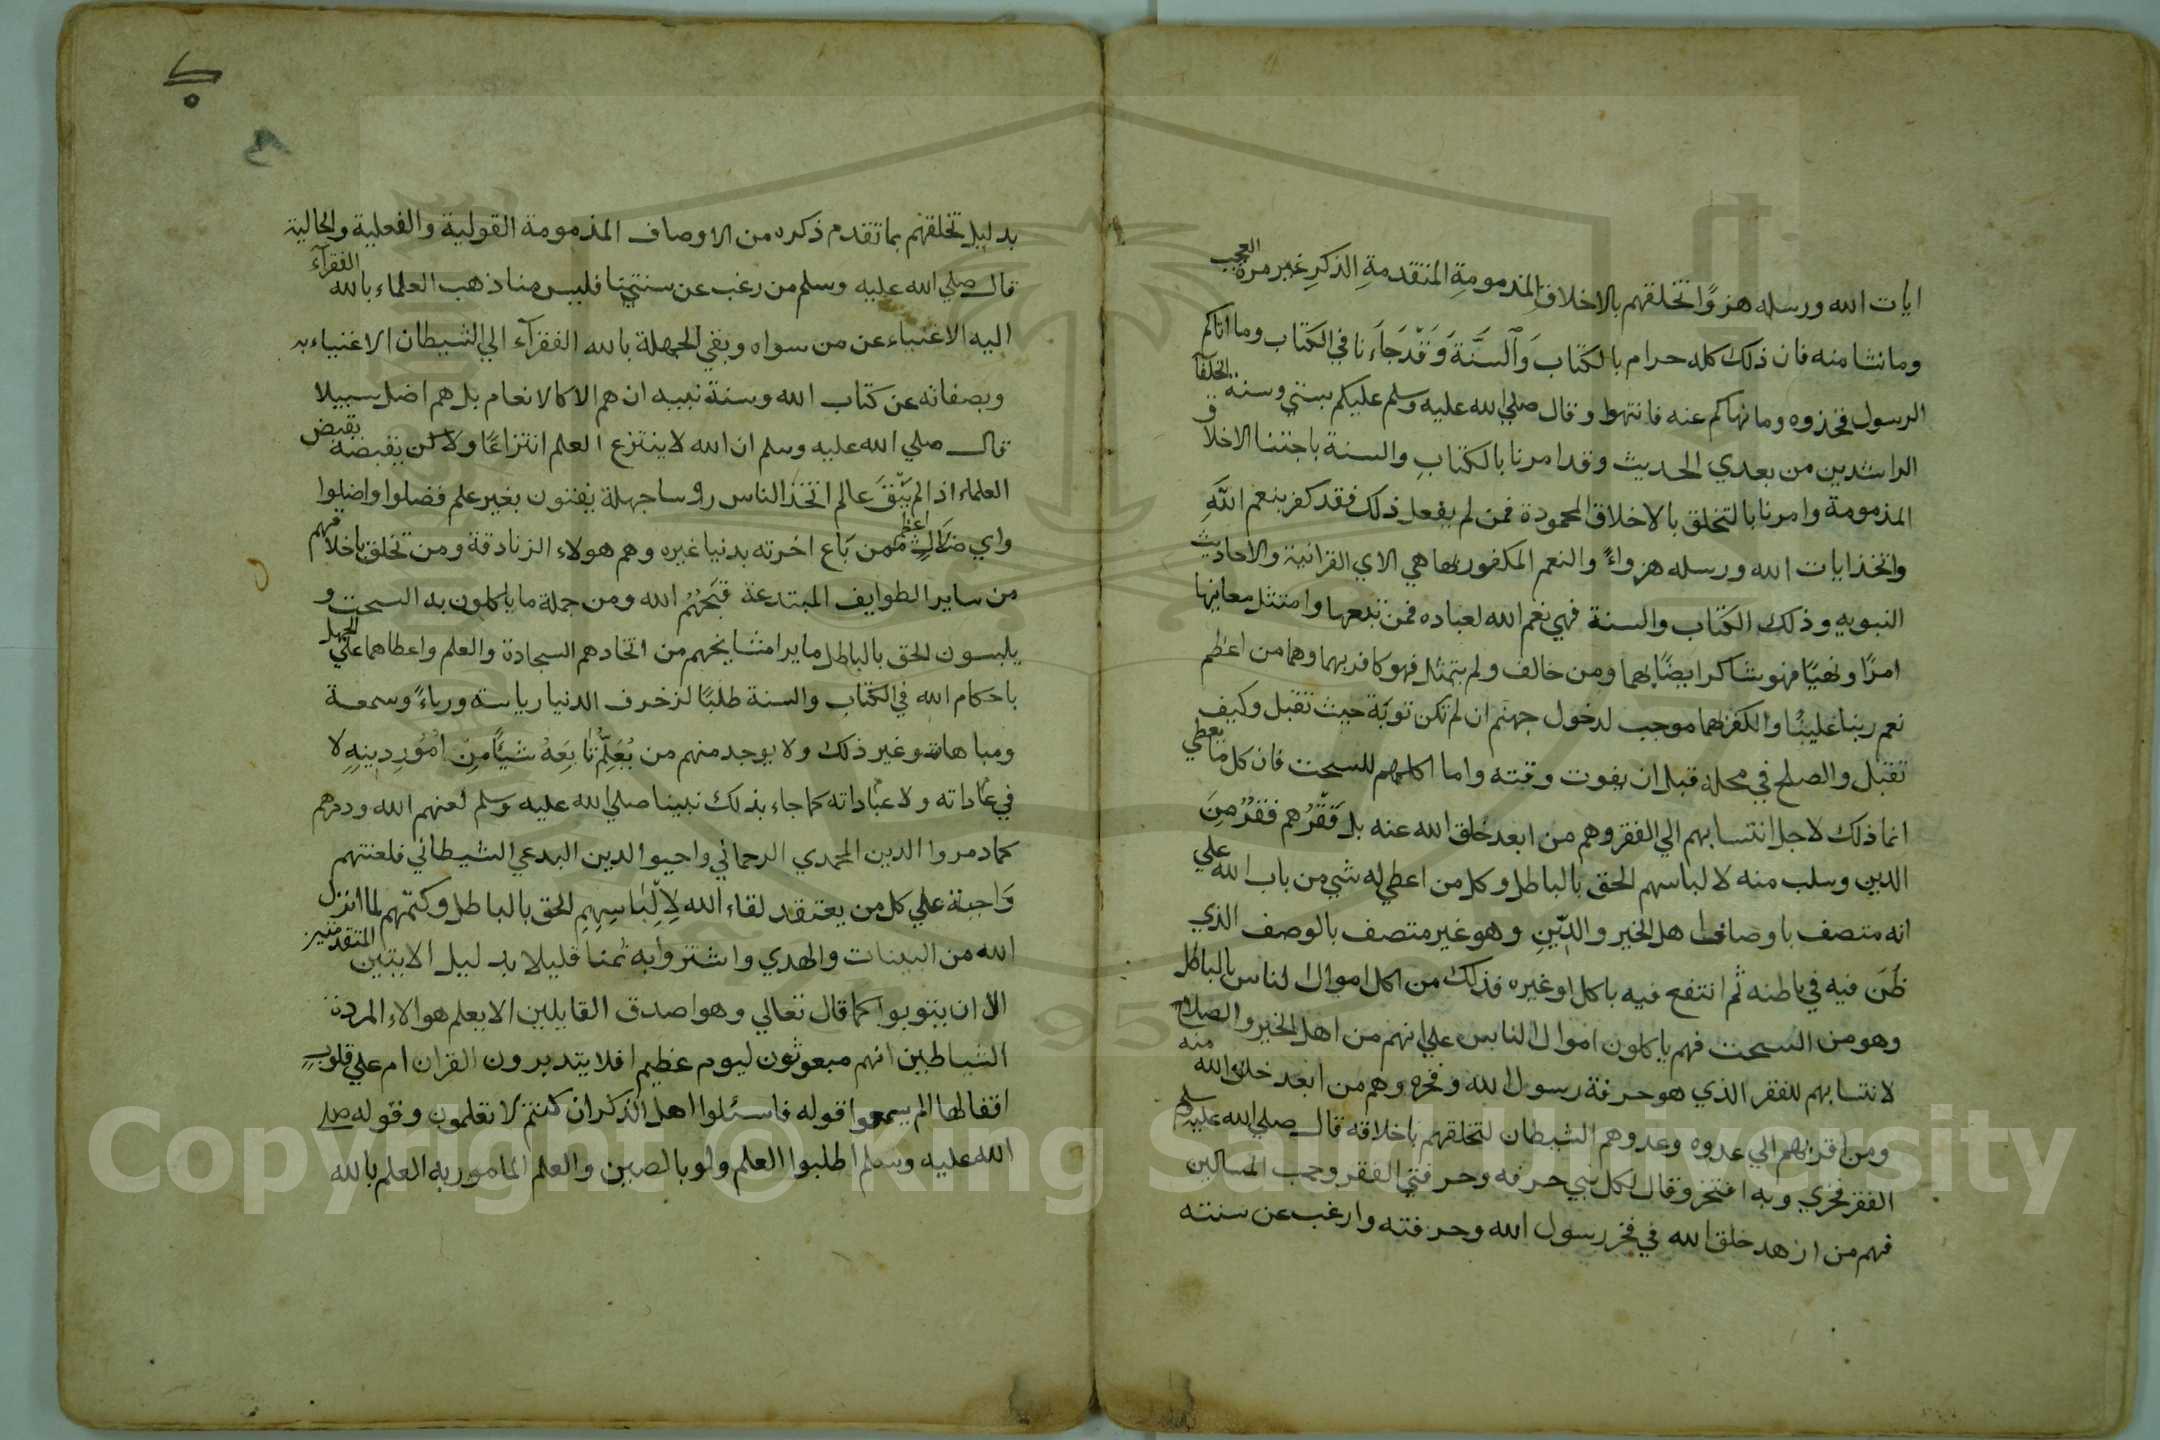 ايات الله ورسله هزوًا تخلقهم بالاخلاق المذمومةِ المتقدمةِ الذكرِ غير مرة العجب
وما نشا منه فان ذلك كله حرام بالكتاب وَالسنَّةَ وَقدْ جَآءَنا في الكتاب وما اتاكم
الرسول فخذوه وما نهاكم عنه فانتهوا وقال صلي الله عليه وسلم عليكم بسنتي وسنة الخلفآ
الراشدين من بعدي الحديث وقد امرنا بالكتابِ والسنة باجتنا الاخلاق
المذمومة وامرنا بالتخلق بالاخلاق المحمودة فمن لم يفعل ذلك فقد كفر بنعم اللَّهِ
واتخذ ايات الله ورسله هزواءً والنعم المكفور بها هي الاي القرانية والاحاديث
النبويه وذلك الكتاب والسنة فهي نعم الله لعباده فمن تبعها وامتثل معانيها
امرًا ونهيًا فهو شاكر ايضًا بهما ومن خالف ولم يتمثل فهو كافر بهما وهما من اعظم
نعم ربنا علينُا والكفر بهما موجب لدخول جهنم ان لم تكن توبَة حيث تقبل وكيف
تقبل والصلح في محله قبل ان يفوت وقته واما اكلهم للسحت فان كل ما يعطي
انما ذلك لاجل انتسابهم الي الفقر وهم من ابعد خلق الله عنه بل فَقْرُهم فقرٌ مِنَ
الدين وسلب منه لالباسهم الحق بالباطل وكل من اعطي له شي من باب الله علي
انه متصف باوصاف اهل الخير والدّينِ وهو غير متصف بالوصف الذي
ظَن فيه في باطنه ثم انتفح فيه باكل او غيره فذلك من اكل اموال الناس بالباطل
وهو من السحت فهم ياكلون اموال الناس علي انهم من اهل الخير والصلاح
لانتسابهم للفقر الذي هو حرفة رسول الله وفخره وهم من ابعد خلق الله منه
ومن اقربهم الي عدوه وعدوهم الشيطان لتخلقهم باخلاقه قال صلي الله عليه وسلم
الفقر فخري وبه افتخر وقال لكل نبي حرفه وحرفتي الفقر وحب المساكين
فهم من ازهد خلق الله في فخر رسول الله وحرفته وارغب عن سنته
بدليل تخلقهم بما تقدم ذكره من الاوصاف المذمومة القولية والفعلية والحالية
قال صلي الله عليه وسلم من رغب عن سنتي فليس منا ذهب العلماء بالله الفقرآء
اليه الاغنياء عن من سواه وبقي الجهلة بالله الفقرآء الي الشيطان الاغنياء به
وبصفاته عن كتاب الله وسنة نبيه ان هم الا كالانعام بل هم اضل سبيلا
قال صلي الله عليه وسلم ان الله لا ينتزع العلم انتزاعًا ولاكن يقبضه بقبض
العلماء اذا لم يَبْقَ عالم اتخذ الناس رؤسا جهلة يفتون بغير علم فضلوا واضلوا
واي ضَلالٍ اعظم ممن بَاع اخرته بدنيا غيره وهم هولاء الزنادقة ومن تخلق باخلاقهم
من ساير الطوايف المبتدعة قبَحهُم الله ومن جملة ما ياكلون به السحت و
يلبسون الحق بالباطل ما يرا مشايخهم من اتخادهم السجادة والعلم واعطاهما علي الجهل
باحكام الله في الكتاب والسنة طلبًا لزخرف الدنيا رياسة ورياءً وسمعة
ومباهات وغير ذلك ولا يوجد منهم من يُعَلِّمُ تابِعَهُ شَيًا مِن امُورِ دِينِهِ لا
في عاداته ولا عباداته كما جاء بذلك نبينا صلي الله عليه وسلم لعنهم الله ودمرهم
كما دمروا الدين المحمدي الرحماني واحيوا الدين البدعي الشيطاني فلعنتهم
وَاجبة علي كل من يعتقد لقاء الله لِالباسِهِمِ الحق بالباطل وكتمهم لما انزل
الله من البينات والهدي واشتروا به ثمنا قليلا بدليل الايتين المتقدمتين
الا ان يتوبوا كما قال تعالي وهو اصدق القايلين الا يعلم هولاء المردة
الشياطين انهم مبعوثون ليوم عظيم افلا يتدبرون القران ام علي قلوبٍ
اقفالها الم يسمعوا قوله فاسئلوا اهل الذكر ان كنتم لا تعلمون وقوله صلي
الله عليه وسلم اطلبوا العلم ولو بالصين والعلم المامور به العلم بالله
Copyright © King Saud University